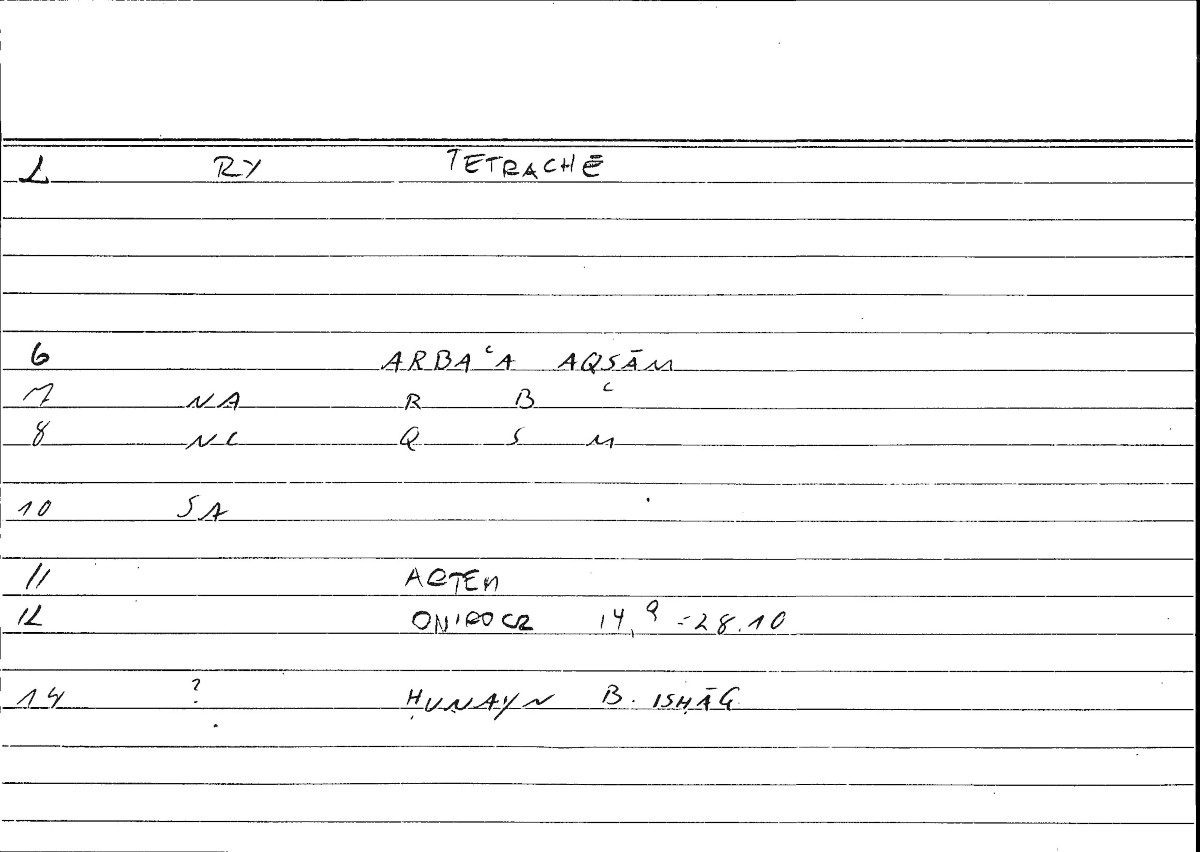 2 RY TETRACHĒ
6 ARBAʿA AQSĀM
7 NA R B ʿ
8 NC Q S M
10 SA
11 ARTEM
12 ONIROCR 14,9 = 28.10
14 ? ḤUNAYN B. ISḤĀG